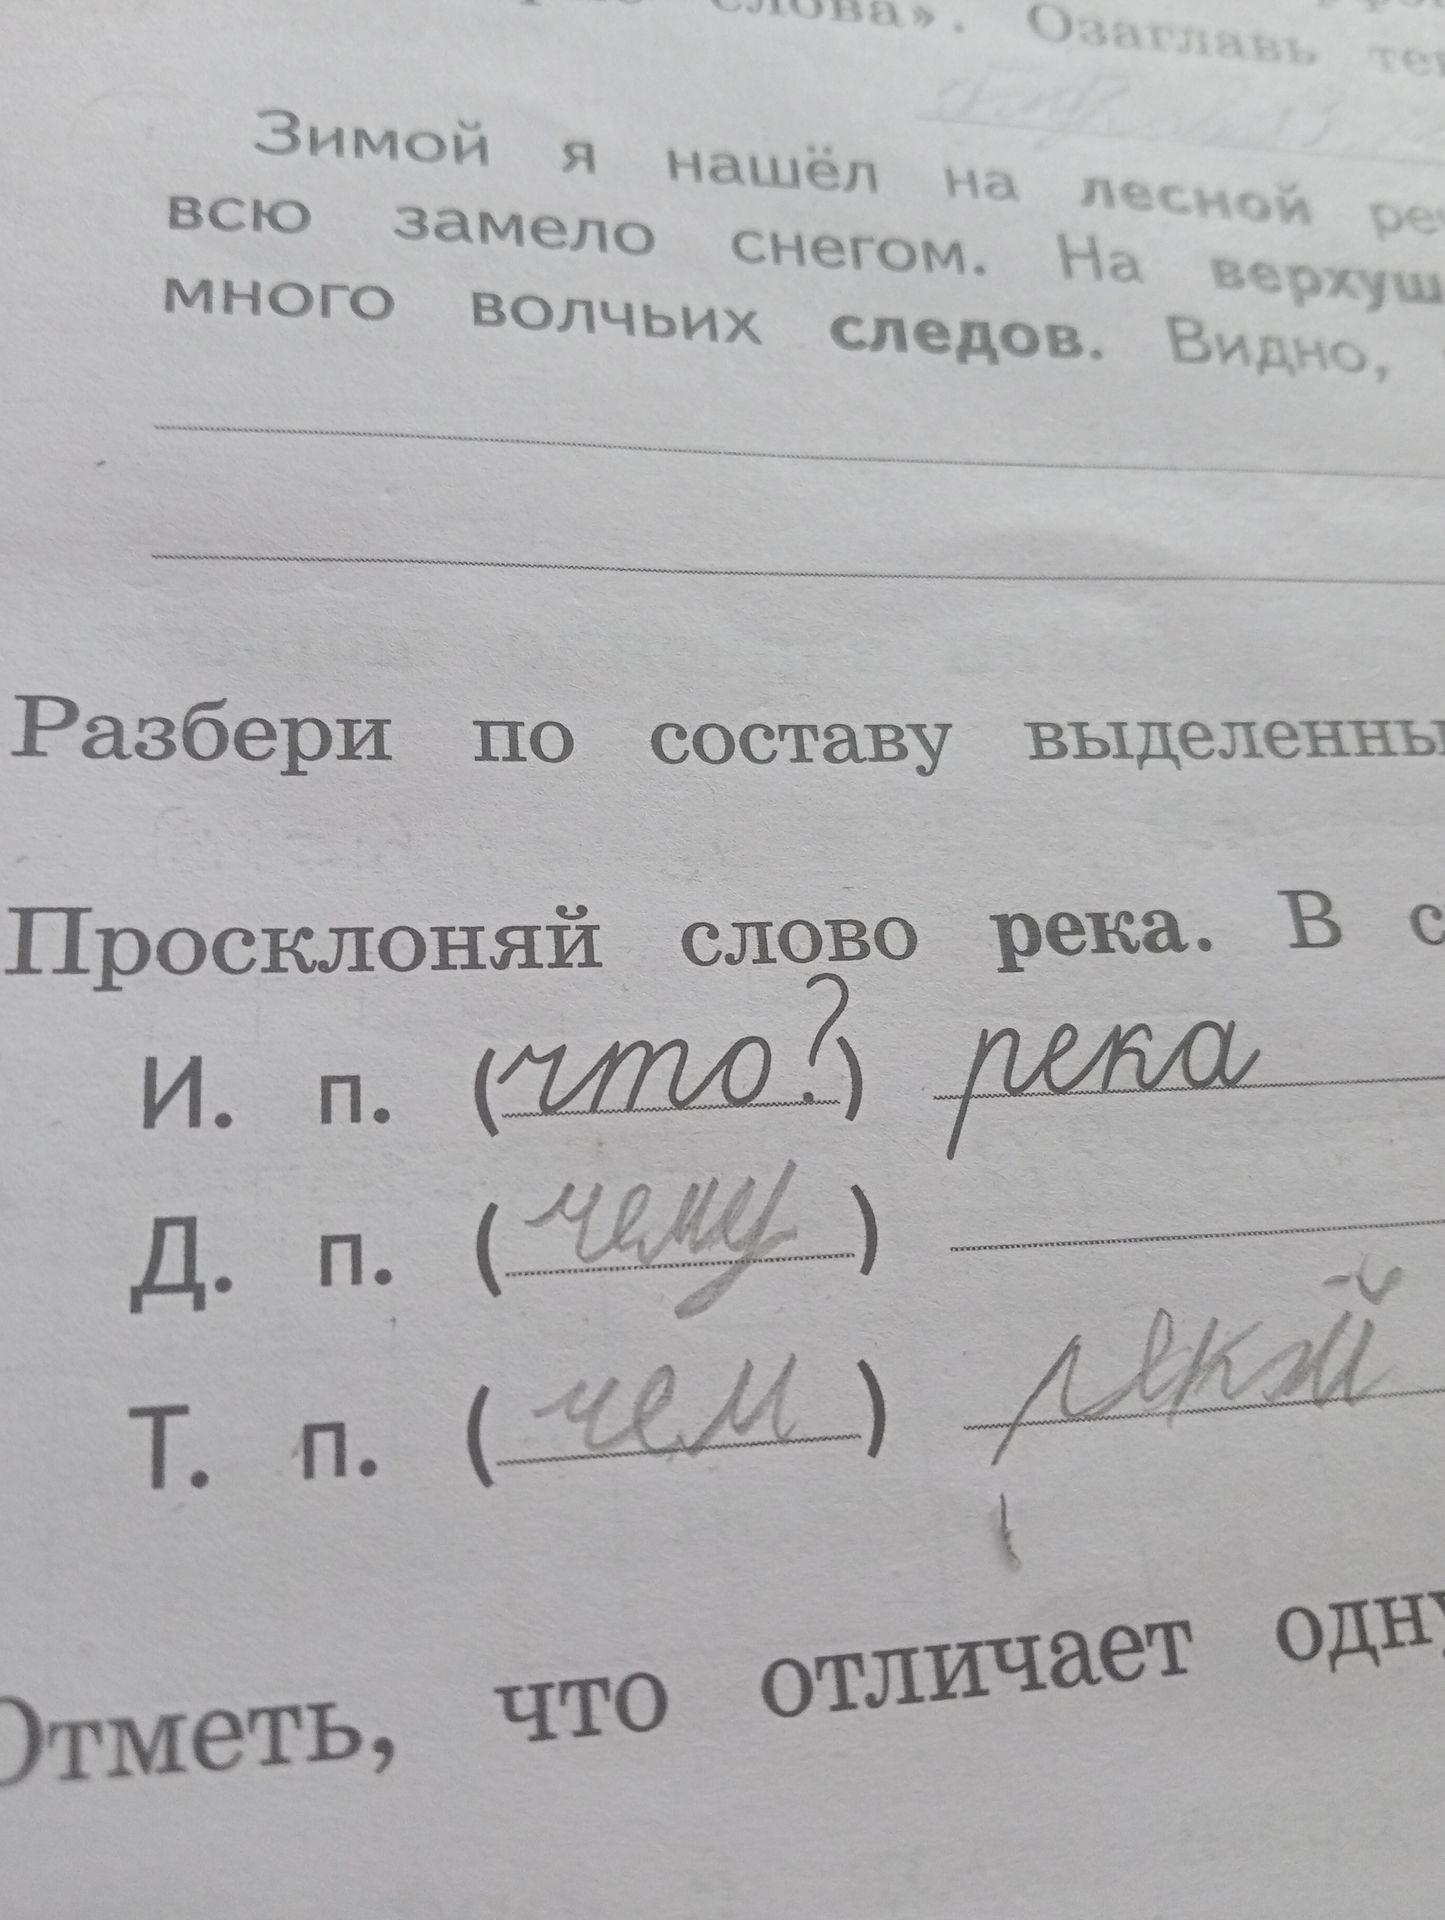 слова». Озаглавь
Зимой я нашёл на лесной
всю замело снегом. На верхуш
много волчьих следов. Видно,
Разбери по составу выделенны
Просклоняй слово река. В с
И. п. (что?) река
Д. п. (чему)
Т. п. (чем) рекой
Отметь, что отличает одну